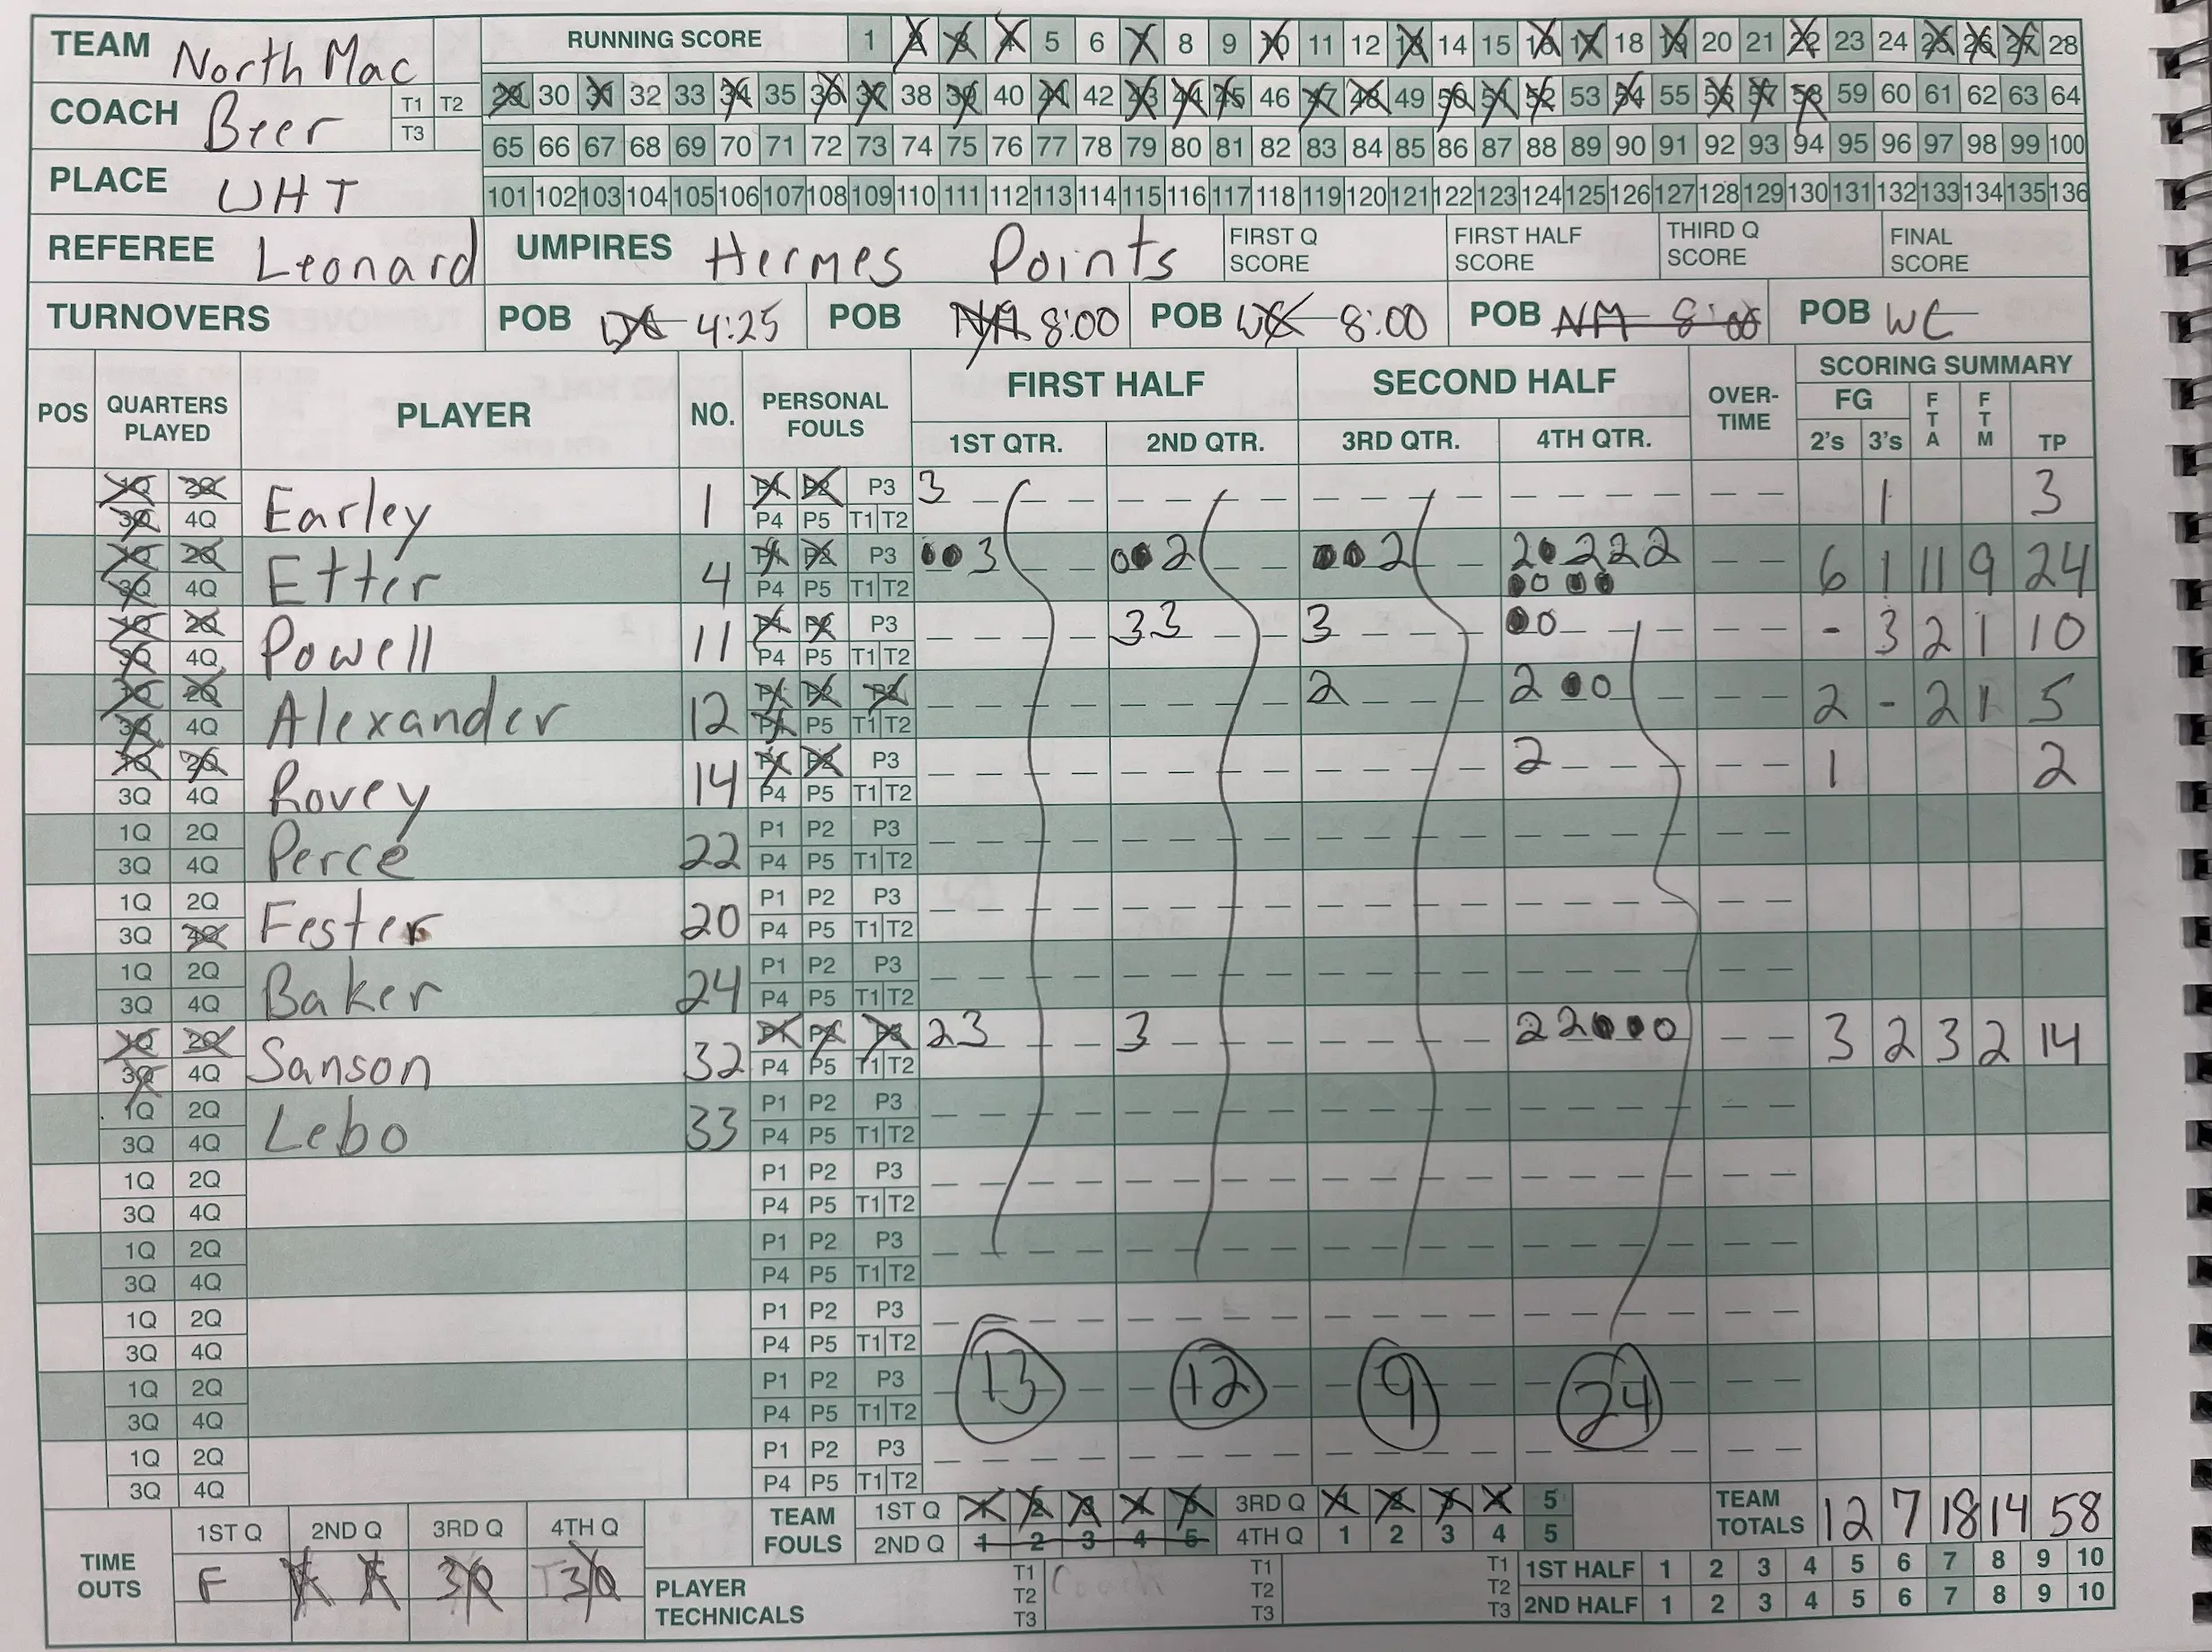 TEAM North Mac
RUNNING SCORE 1 2 3 4 5 6 7 8 9 10 11 12 13 14 15 16 17 18 19 20 21 22 23 24 25 26 27 28
COACH Beer T1 T2 T3
29 30 31 32 33 34 35 36 37 38 39 40 41 42 43 44 45 46 47 48 49 50 51 52 53 54 55 56 57 58 59 60 61 62 63 64
65 66 67 68 69 70 71 72 73 74 75 76 77 78 79 80 81 82 83 84 85 86 87 88 89 90 91 92 93 94 95 96 97 98 99 100
PLACE UHT
101 102 103 104 105 106 107 108 109 110 111 112 113 114 115 116 117 118 119 120 121 122 123 124 125 126 127 128 129 130 131 132 133 134 135 136
REFEREE Leonard UMPIRES Hermes Points FIRST Q SCORE FIRST HALF SCORE THIRD Q SCORE FINAL SCORE
TURNOVERS POB 4:25 POB NM 8:00 POB WC 8:00 POB NM 8:00 POB WC
POS QUARTERS PLAYED PLAYER NO. PERSONAL FOULS FIRST HALF SECOND HALF OVER-TIME SCORING SUMMARY
1ST QTR. 2ND QTR. 3RD QTR. 4TH QTR. FG 2's 3's FTA FTM TP
1Q 2Q 3Q 4Q Earley 1 P1 P2 P3 P4 P5 T1 T2 3 1 3
1Q 2Q 3Q 4Q Etter 4 P1 P2 P3 P4 P5 T1 T2 3 2 2 2 2 2 2 6 1 11 9 24
1Q 2Q 3Q 4Q Powell 11 P1 P2 P3 P4 P5 T1 T2 3 3 3 - 3 2 1 10
1Q 2Q 3Q 4Q Alexander 12 P1 P2 P3 P4 P5 T1 T2 2 2 2 - 2 1 5
1Q 2Q 3Q 4Q Rovey 14 P1 P2 P3 P4 P5 T1 T2 2 1 2
1Q 2Q 3Q 4Q Perce 22 P1 P2 P3 P4 P5 T1 T2
1Q 2Q 3Q 4Q Fester 20 P1 P2 P3 P4 P5 T1 T2
1Q 2Q 3Q 4Q Baker 24 P1 P2 P3 P4 P5 T1 T2
1Q 2Q 3Q 4Q Sanson 32 P1 P2 P3 P4 P5 T1 T2 2 3 3 2 2 3 2 3 2 14
1Q 2Q 3Q 4Q Lebo 33 P1 P2 P3 P4 P5 T1 T2
1Q 2Q 3Q 4Q P1 P2 P3 P4 P5 T1 T2
1Q 2Q 3Q 4Q P1 P2 P3 P4 P5 T1 T2
1Q 2Q 3Q 4Q P1 P2 P3 P4 P5 T1 T2
1Q 2Q 3Q 4Q P1 P2 P3 P4 P5 T1 T2 13 12 9 24
1Q 2Q 3Q 4Q P1 P2 P3 P4 P5 T1 T2
TIME OUTS 1ST Q 2ND Q 3RD Q 4TH Q
F 30 30
TEAM FOULS 1ST Q 1 2 3 4 5 3RD Q 1 2 3 4 5
2ND Q 1 2 3 4 5 4TH Q 1 2 3 4 5
TEAM TOTALS 12 7 18 14 58
PLAYER TECHNICALS T1 T2 T3 Coach T1 T2 T3 T1 T2 T3
1ST HALF 1 2 3 4 5 6 7 8 9 10
2ND HALF 1 2 3 4 5 6 7 8 9 10